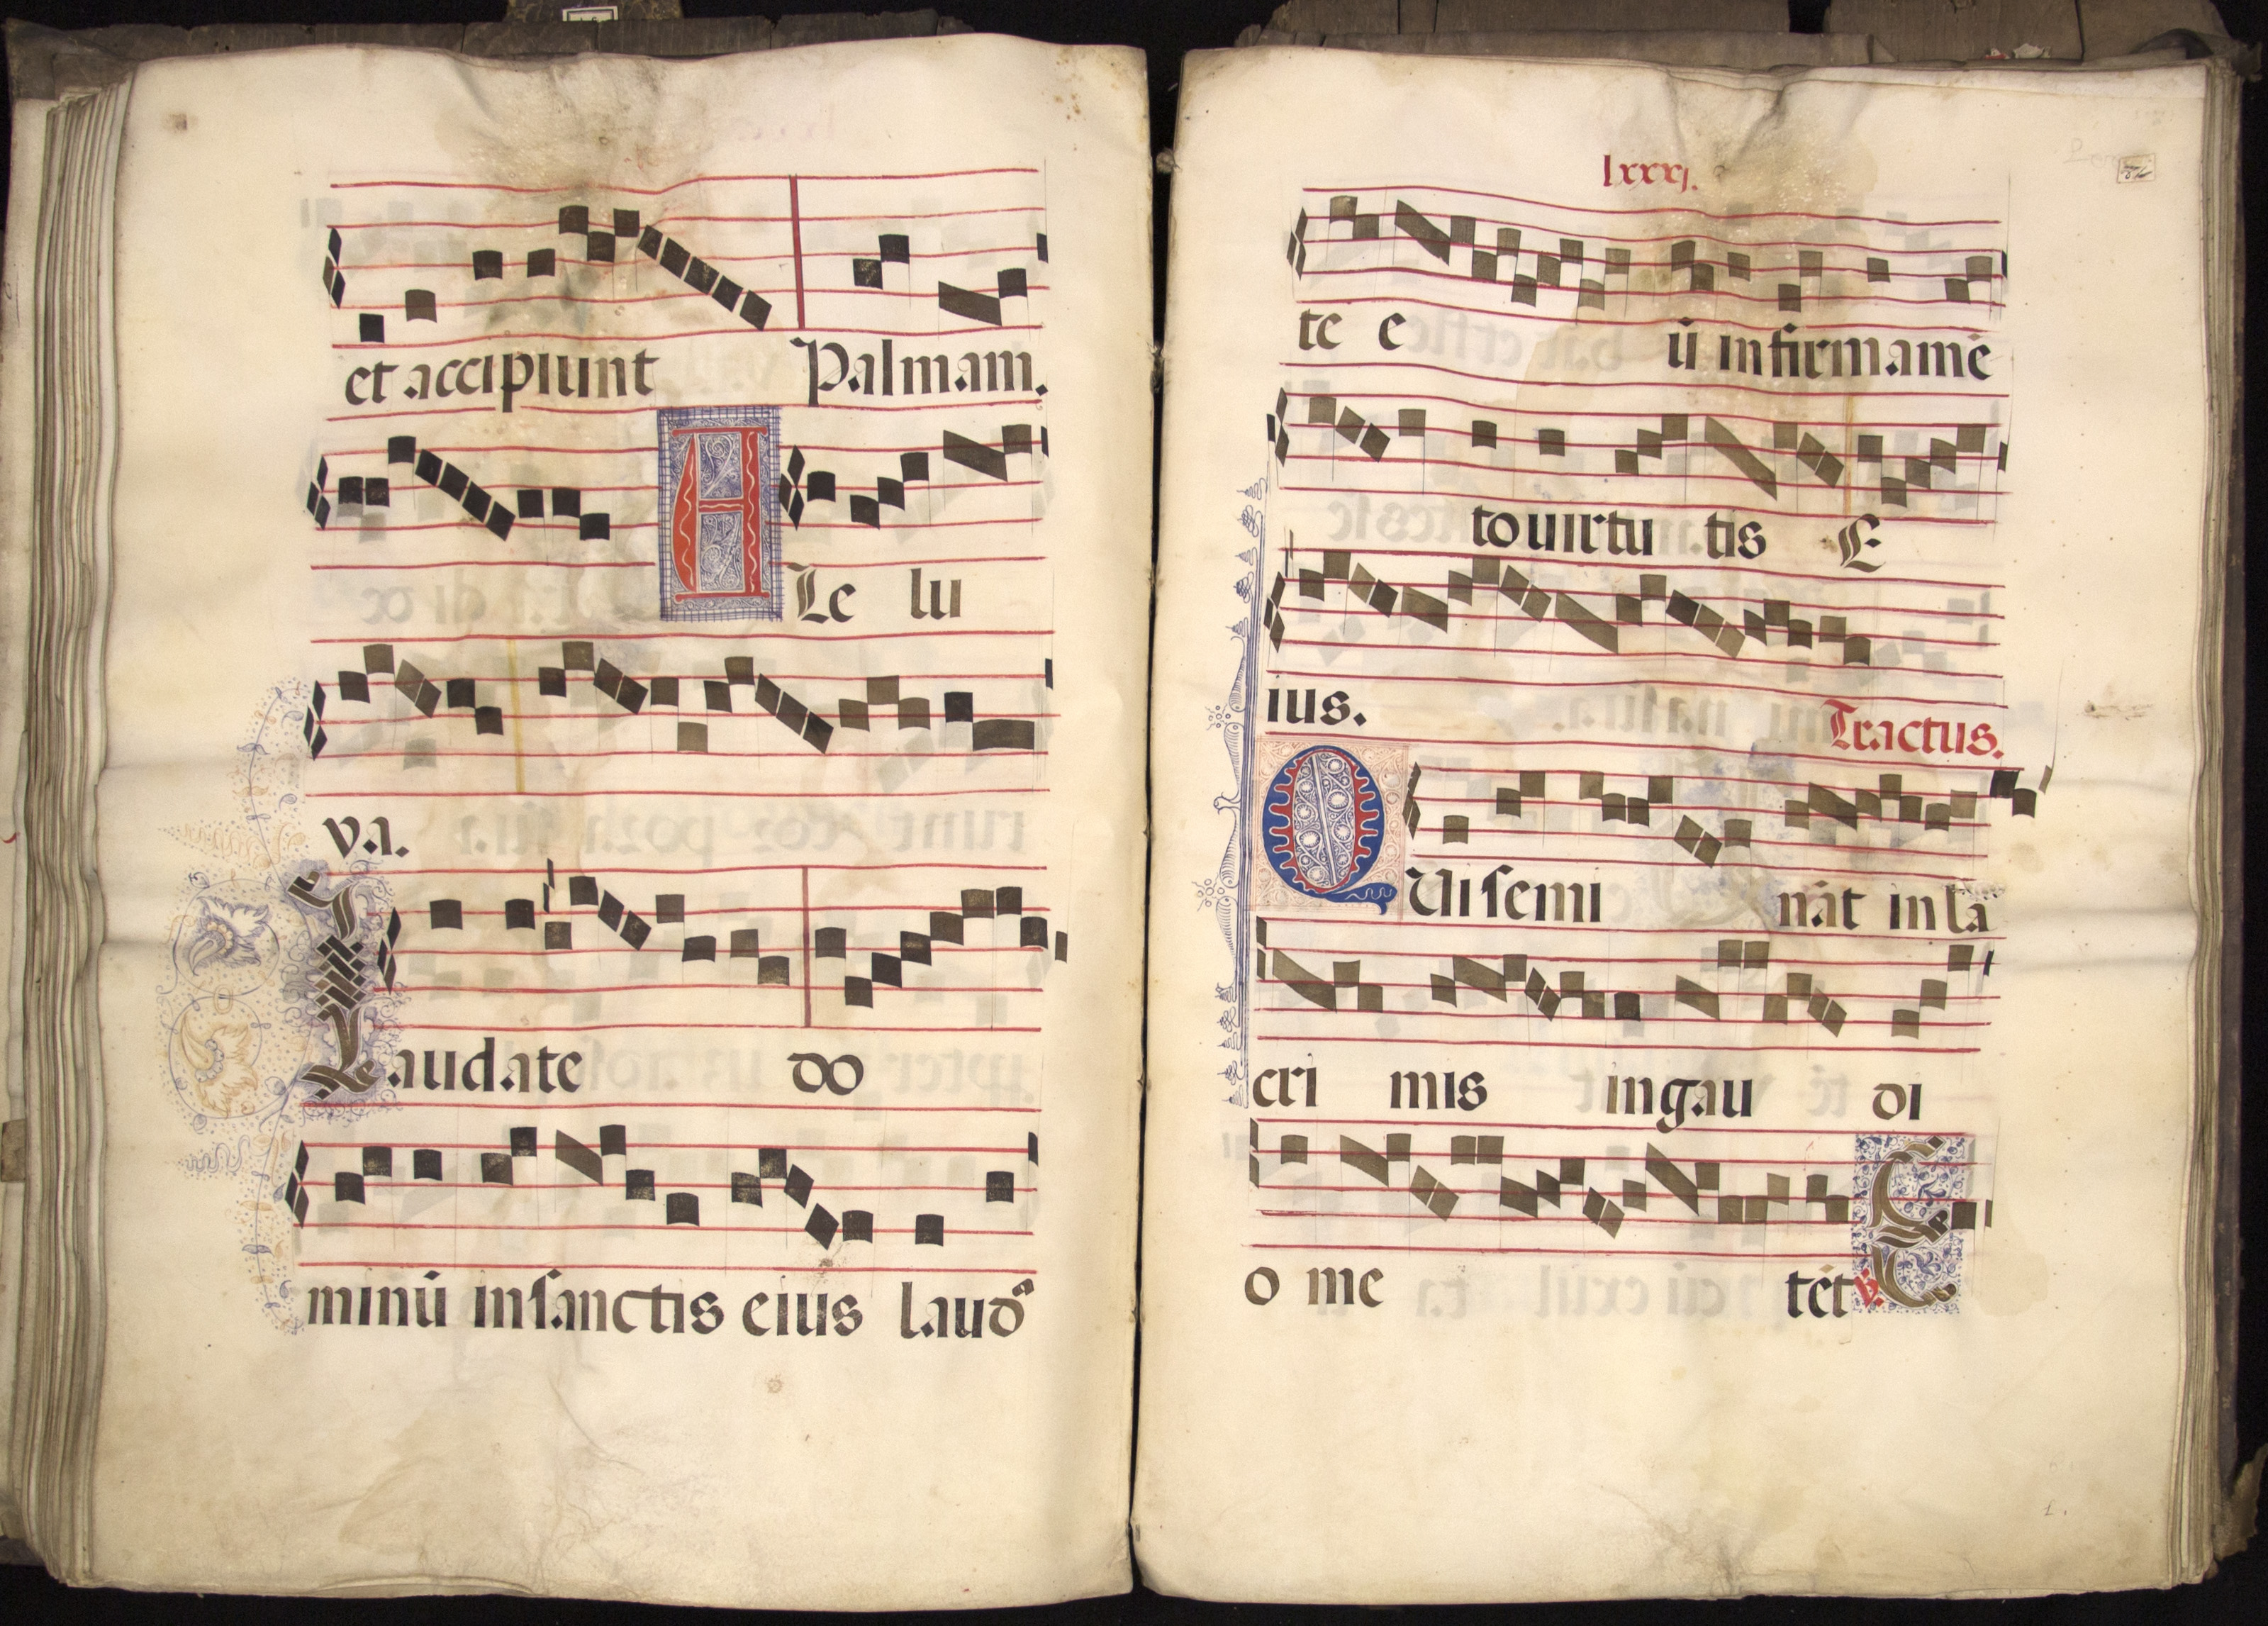 et accipiunt Palmam.
ALe lu
va.
Laudate do
minū in sanctis eius laudᵃ
lxxxj.
te e ū in firmamē
to uirtu tis E
ius.
Tractus.
QUi semi nāt in la
cri mis in gau di
o me tēt ℣. E